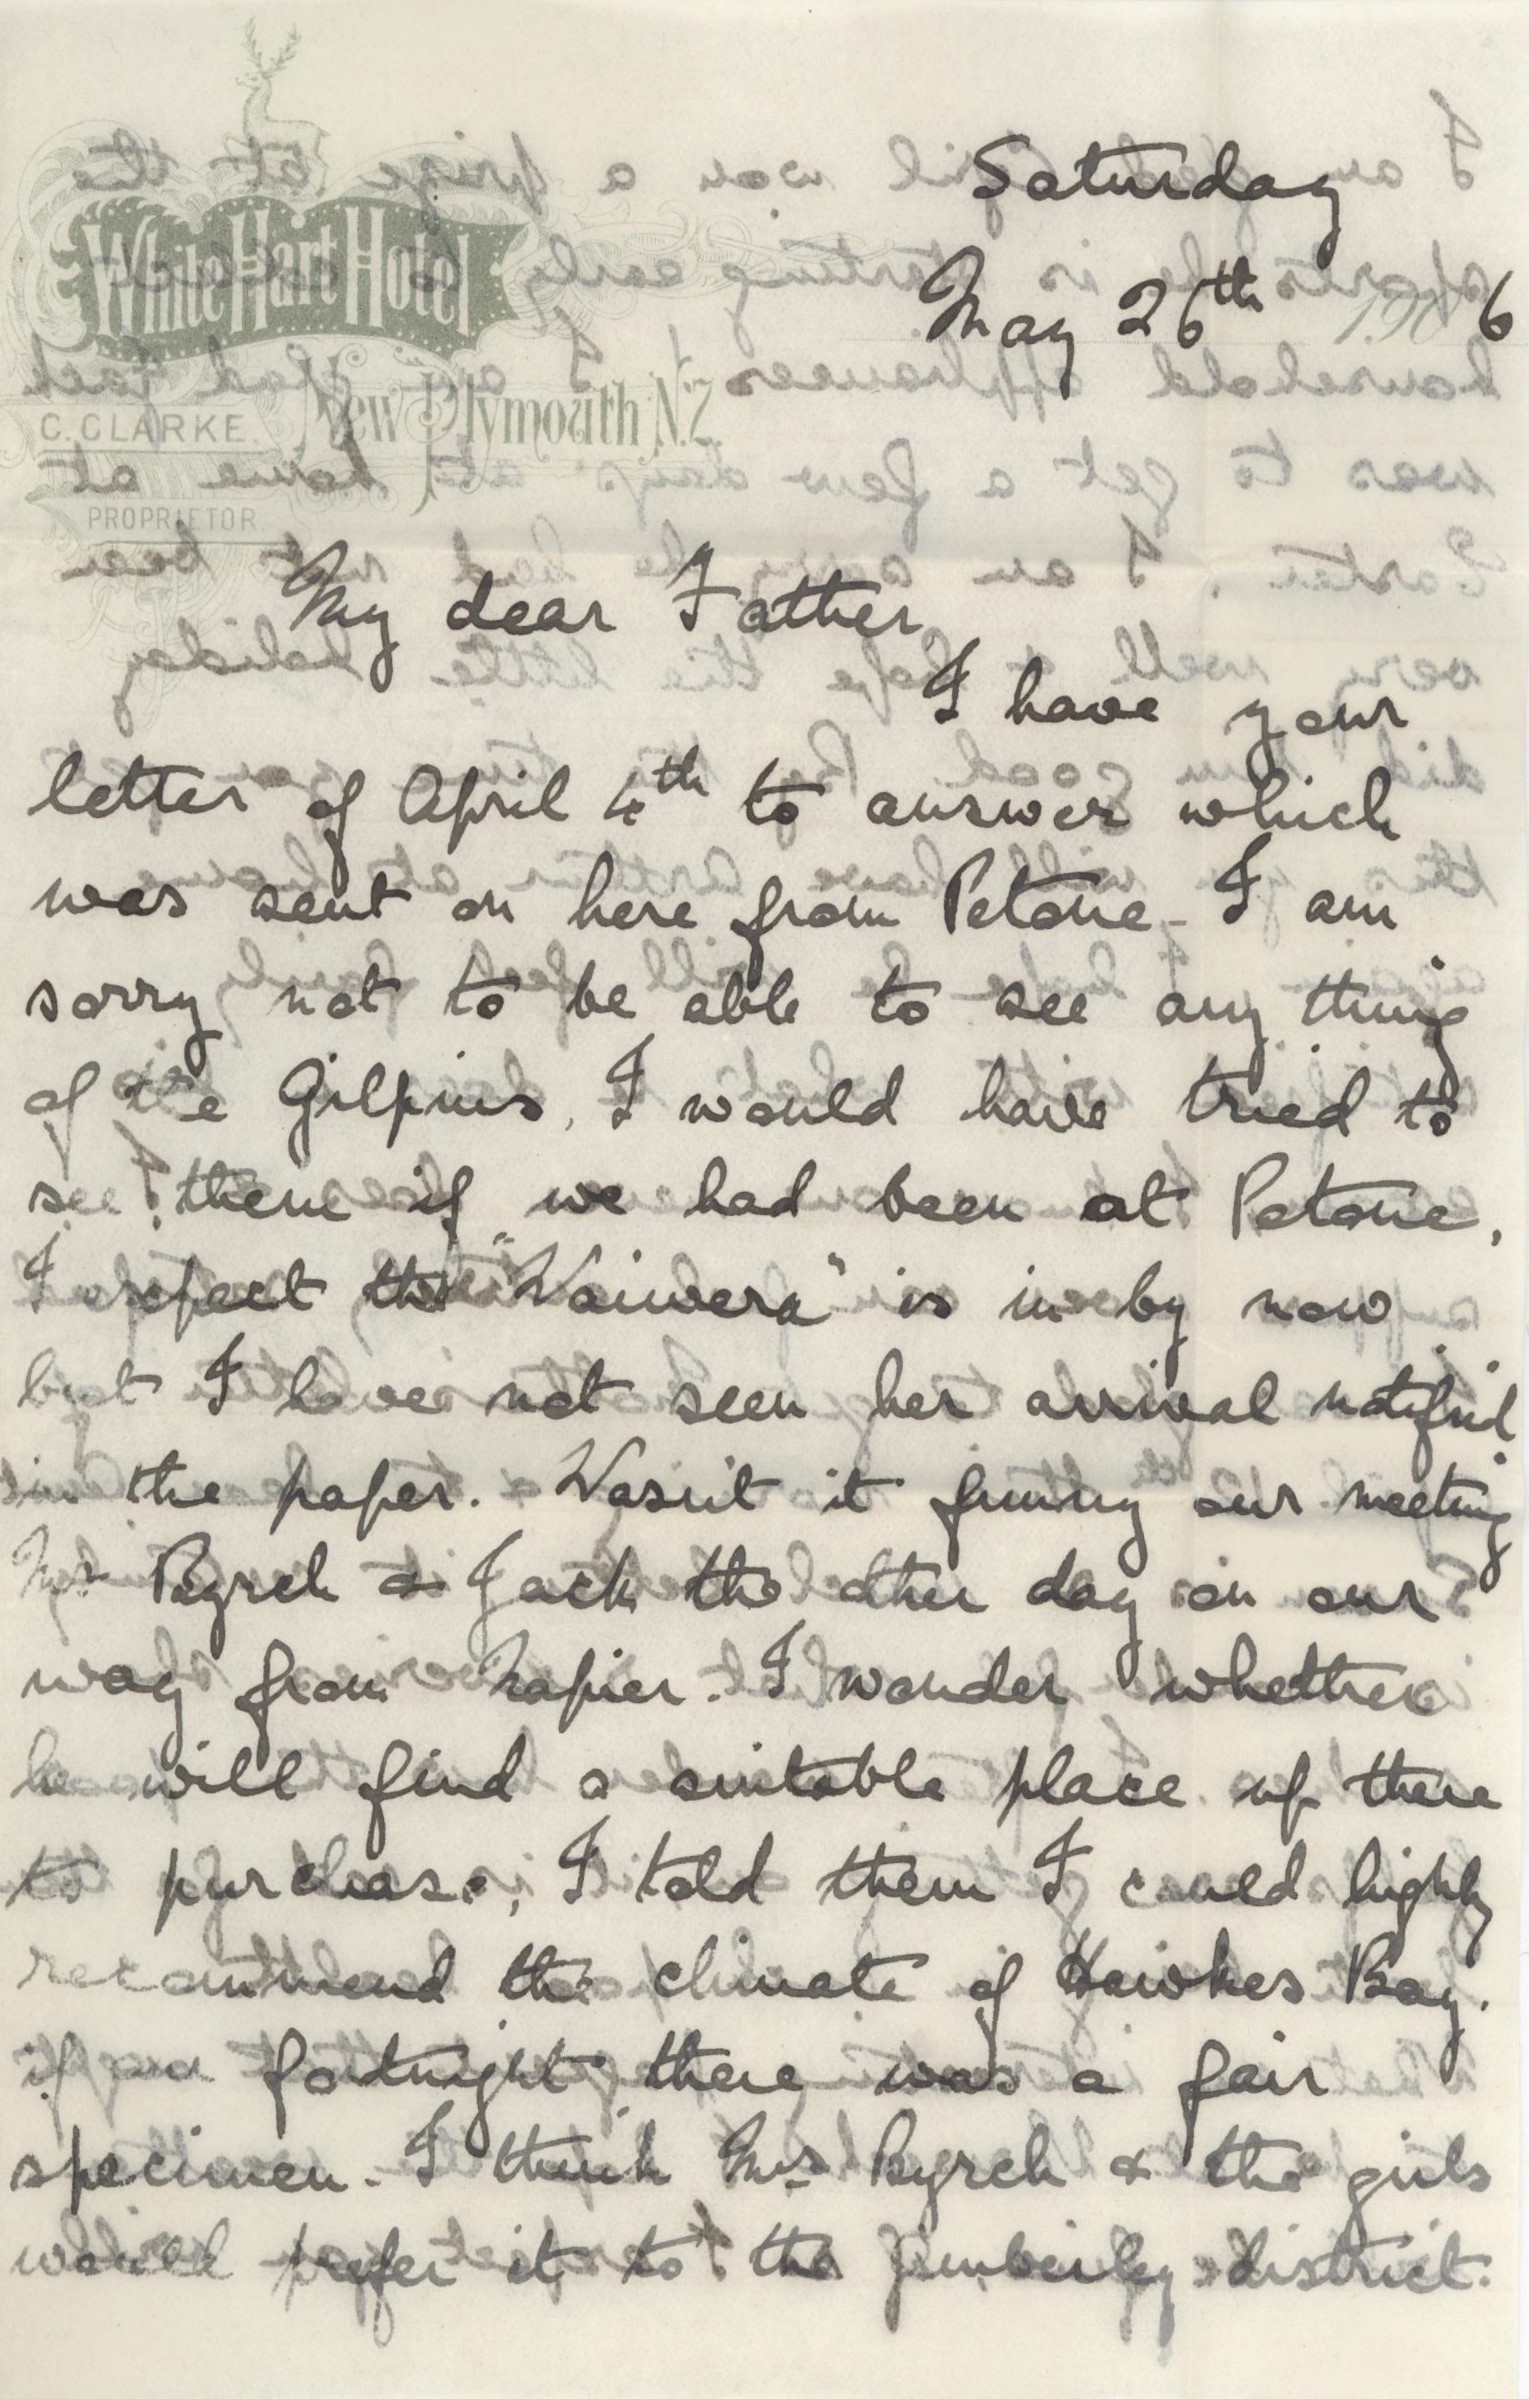 White Hart Hotel
New Plymouth N.Z.
C. CLARKE.
PROPRIETOR
Saturday
May 26th 1906
My dear Father
I have your
letter of April 4th to answer which
was sent on here from Petone - I am
sorry not to be able to see any thing
of the Gilpins, I would have tried to
see them if we had been at Petone,
I expect the "Waiwera" is in by now
but I have not seen her arrival notified
in the paper. Wasn't it funny our meeting
Mr Byrch & Jack the other day on our
way from Napier. I wonder whether
he will find a suitable place up there
to purchase, I told them I could highly
recommend the climate of Hawkes Bay.
if our fortnight there was a fair
specimen - I think Mrs Byrch & the girls
would prefer it to the district.